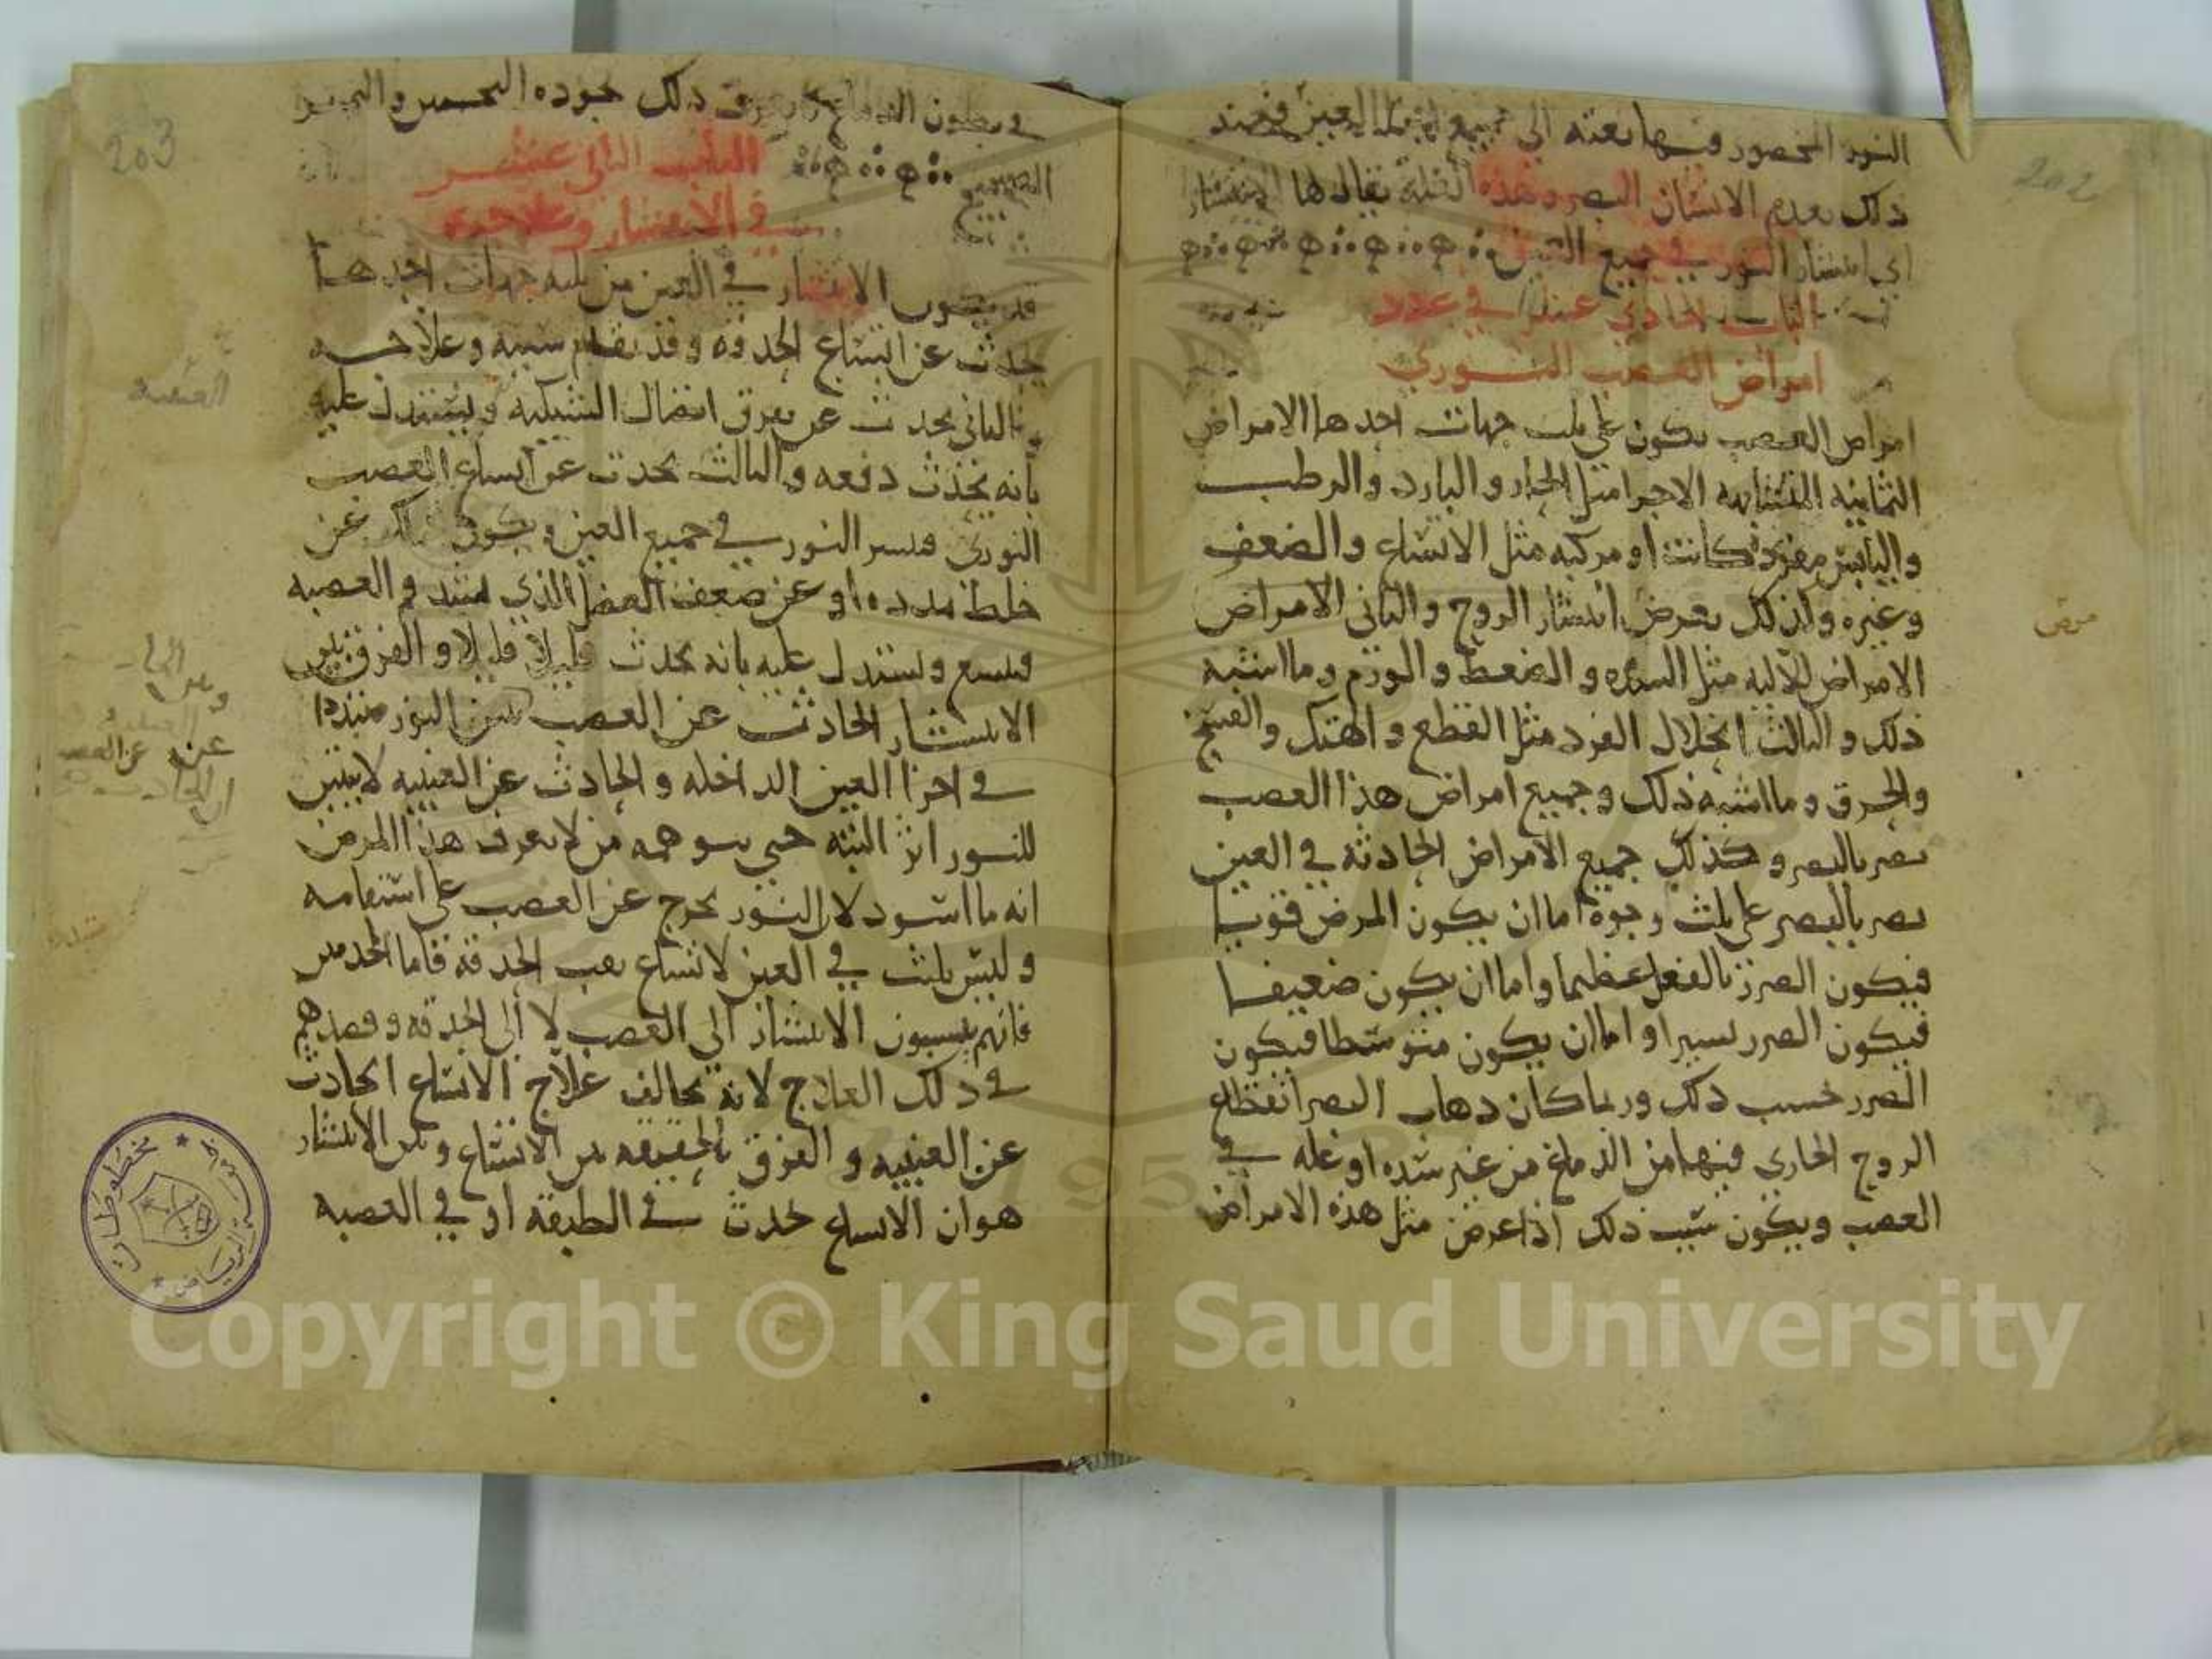 202
النور المحصور فيها بعثه الى جميع العين فعند
ذلك يعدم الانسان البصر وهذه العله يقال لها الانتشار
اي انتشار النور في جميع العين
الباب الحادي عشر في عدد
امراض العصب النوري
امراض العصب يكون على ثلث جهات احدها الامراض
الثمانيه المتشابهه الاجزا مثل الحار والبارد والرطب
واليابس مفرده كانت او مركبه مثل الاتساع والضعف
وغيره ولذلك يعرض انتشار الروح والثاني الامراض
الامراض الآليه مثل السده والضغط والورم وما اشبه
ذلك والثالث انحلال الفرد مثل القطع والهتك والفسخ
والحرق وما اشبه ذلك وجميع امراض هذا العصب
تضر بالبصر وكذلك جميع الامراض الحادثه في العين
تضر بالبصر على ثلث وجوه اما ان يكون المرض قويا
فيكون الضرر بالفعل عظيما واما ان يكون ضعيفا
فيكون الضرر يسيرا واما ان يكون متوسطا فيكون
الضرر حسب ذلك وربما كان ذهاب البصر انقطاع
الروح الجاري فيها من الدماغ من غير سده او عله في
العصب ويكون سبب ذلك اذا عرض مثل هذه الامراض
مرض
203
في بطون الدماغ ذلك جوده التخمين والتمييز
الصحيح
الباب الثاني عشر
في الانتشار وعلاجه
قد يكون الانتشار في العين من ثلثه جهات احدها
يحدث عن اتساع الحدقه وقد تقدم سببه وعلاجه
والثاني يحدث عن تفرق اتصال الشبكيه ويستدل عليه
بانه يحدث دفعه والثالث يحدث عن اتساع العصب
النوري فينتشر النور في جميع العين ويكون ذلك عن
خلط يمدده او عن ضعف العضل الذي يشد فم العصبه
فيتسع ويستدل عليه بانه يحدث قليلا قليلا والفرق بين
الانتشار الحادث عن العصب النور متبددا
في اجزا العين الداخله والحادث عن العنبيه لا يتبين
للنور اثر البته حتى يتوهمه من لا يعرف هذا المرض
انه ما اسود لان النور يخرج عن العصب على استقامه
وليس يلبث في العين لاتساع ثقب الحدقه فاما الحدس
فانهم ينسبون الانتشار الى العصب لا الى الحدقه وقصدهم
في ذلك العلاج لانه يخالف علاج الاتساع الحادث
عن العنبيه والفرق بالحقيقه بين الاتساع وبين الانتشار
هو ان الاتساع يحدث في الطبقه او في العصبه
عن العصب
الحادث
مخطوطات
الرياض
1957
Copyright © King Saud University